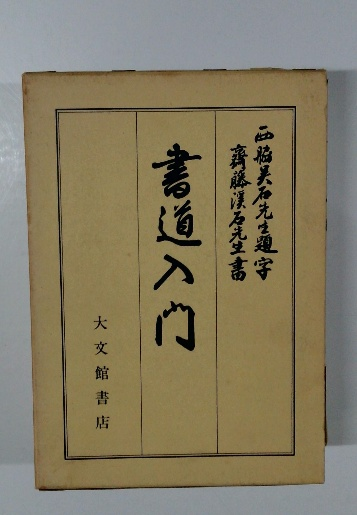 西脇呉石先生題字
齋藤渓石先生書
書道入門
大文館書店